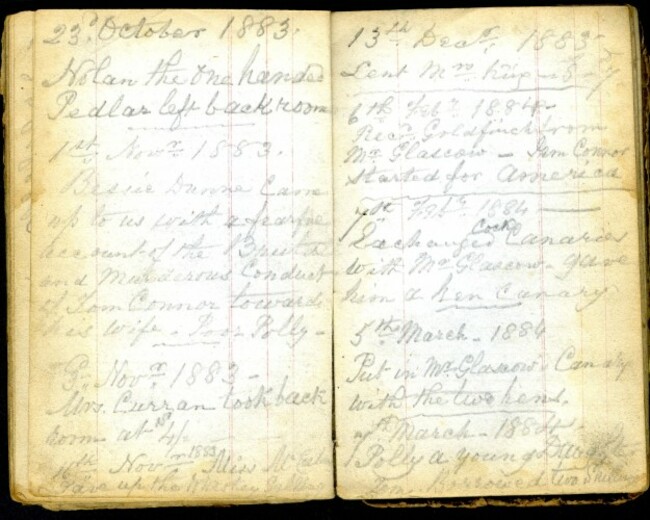 23d October 1883.
Nolan the One handed
Pedlar left back room
1st Novr 1883.
Bessie Dunne Came
up to us with a fearful
account of the Brutal
and Murderous Conduct
of Tom Connor towards
his wife - Poor Polly -
9th Novr 1883 -
Mrs. Curran took back
room at 4/-
Novr 1883 Miss
Gave up the
13th Decr 1883 -
Lent Mrs
6th Feby 1884 -
Recd Goldfinch from
Mr Glascow - Tom Connor
started for America
Feby 1884
Exchanged Cock Canaries
with Mr Glascow - gave
him a hen Canary
5th March - 1884
Put in Mr Glascow's Canary
with the two hens.
March - 1884
Polly a young Daughter
Tom Borrowed two Shillings